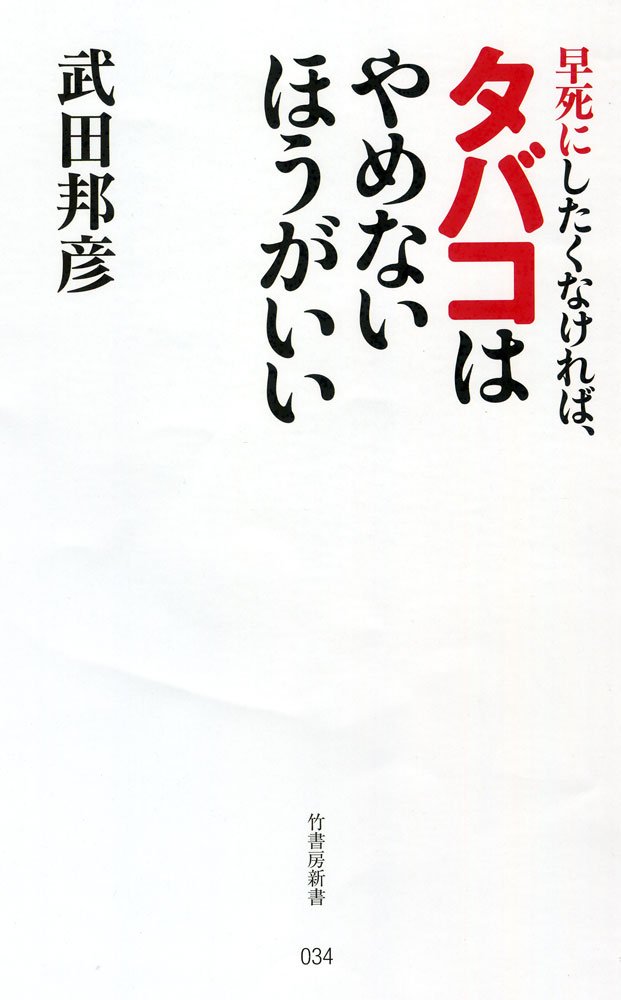 早死にしたくなければ、
タバコは
やめない
ほうがいい
武田邦彦
竹書房新書
034